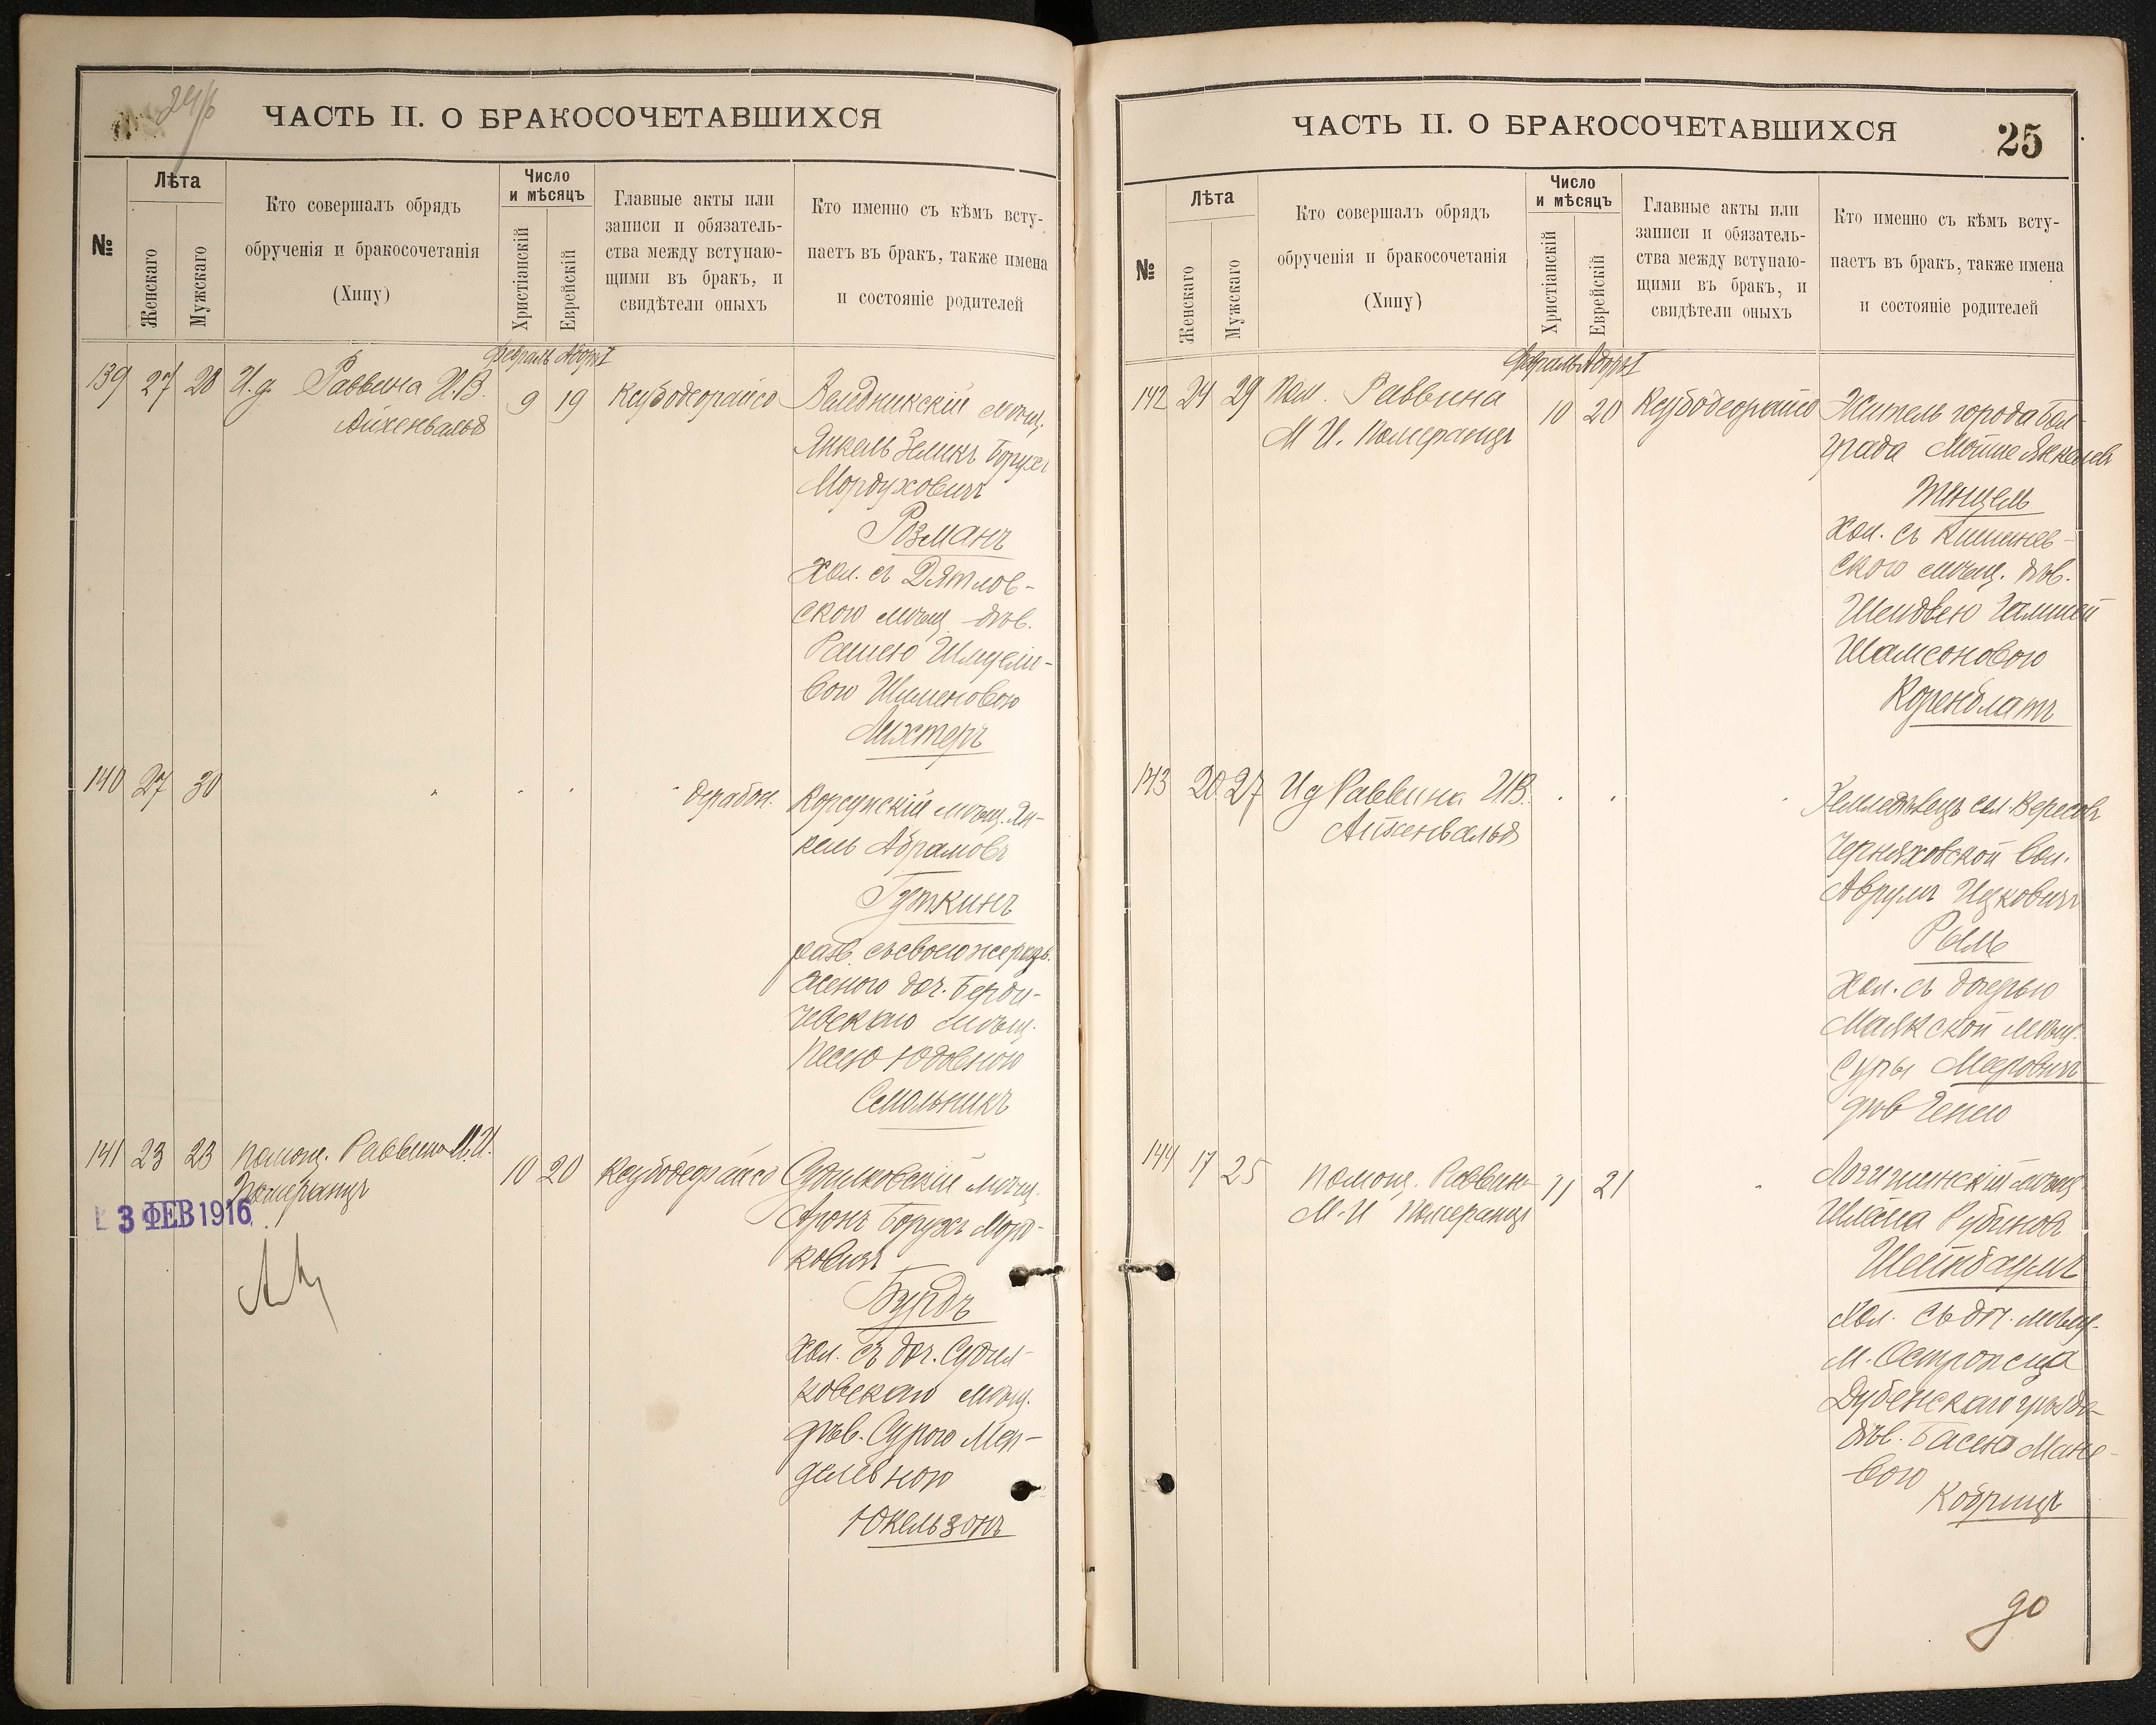 24/б
ЧАСТЬ II. О БРАКОСОЧЕТАВШИХСЯ
№
Лѣта
Женскаго
Мужскаго
Кто совершалъ обрядъ
обрученія и бракосочетанія
(Хипу)
Число
и мѣсяцъ
Христіанскій
Еврейскій
Главные акты или
записи и обязатель-
ства между вступаю-
щими въ бракъ, и
свидѣтели оныхъ
Кто именно съ кѣмъ всту-
паетъ въ бракъ, также имена
и состояніе родителей
Февраль Адоръ I
139 27 28 И.д. Раввина И.В.
Айхенвальд
9 19
Ксубодеорайсо
Веледникскій мѣщ.
Янкель Зеликъ Борухъ
Мордуховичъ
Розманъ
Хол. съ Дятлов-
скою мѣщ. дѣв.
Рашею Шмуели-
вою Шименовою
Лихтеръ
140 27 30
дерабон.
Корсунскій мѣщ. Ян-
кель Абрамовъ
Гуткинъ
разв. съ своею же развъ.
женою доч. Берди-
чевскаго мѣщ.
Песею Юдовною
Смольникъ
141 23 23 Помощ. Раввина М.И.
Померанцъ
10 20
Ксубодеорайсо
Судилковскій мѣщ.
Аронъ БорухъМорд-
ковичъ
Бурдъ
хол. съ доч. Судил-
ковскаго мѣщ.
дѣв. Сурою Мен-
делевною
Юкельзонъ
3 ФЕВ 1916
ЧАСТЬ II. О БРАКОСОЧЕТАВШИХСЯ
25
№
Лѣта
Женскаго
Мужскаго
Кто совершалъ обрядъ
обрученія и бракосочетанія
(Хипу)
Число
и мѣсяцъ
Христіанскій
Еврейскій
Главные акты или
записи и обязатель-
ства между вступаю-
щими въ бракъ, и
свидѣтели оныхъ
Кто именно съ кѣмъ всту-
паетъ въ бракъ, также имена
и состояніе родителей
Февраль Адоръ I
142 24 29 Пом. Раввина
М И. Померанцъ
10 20
Ксубодеорайсо
Житель города Бол-
града Мойше Янкелев
Тенцель
Хол. съ Кишинев-
скою мѣщ. дѣв.
Шейдвею
Шамсоновою
Коренблатъ
143 20 27 И д Раввина И.В.
Айхенвальд
Землевлецъ сел.
Черняховской вол.
Аврумъ Ицковичъ
Рымъ
Хол. съ дочерью
Маякской мѣщ.
Суры Мееровичъ
дѣв Генею
144 17 25 Помощ. Раввин
М. И Померанцъ
11 21
Логишинскій мѣщ
Шлёма Рубинов
Шейнбаумъ
Хол. съ доч. мѣщ.
м. Остропсица
Дубенскаго уѣзда
дѣв. Басею Мане-
вою
Кобрицъ
до